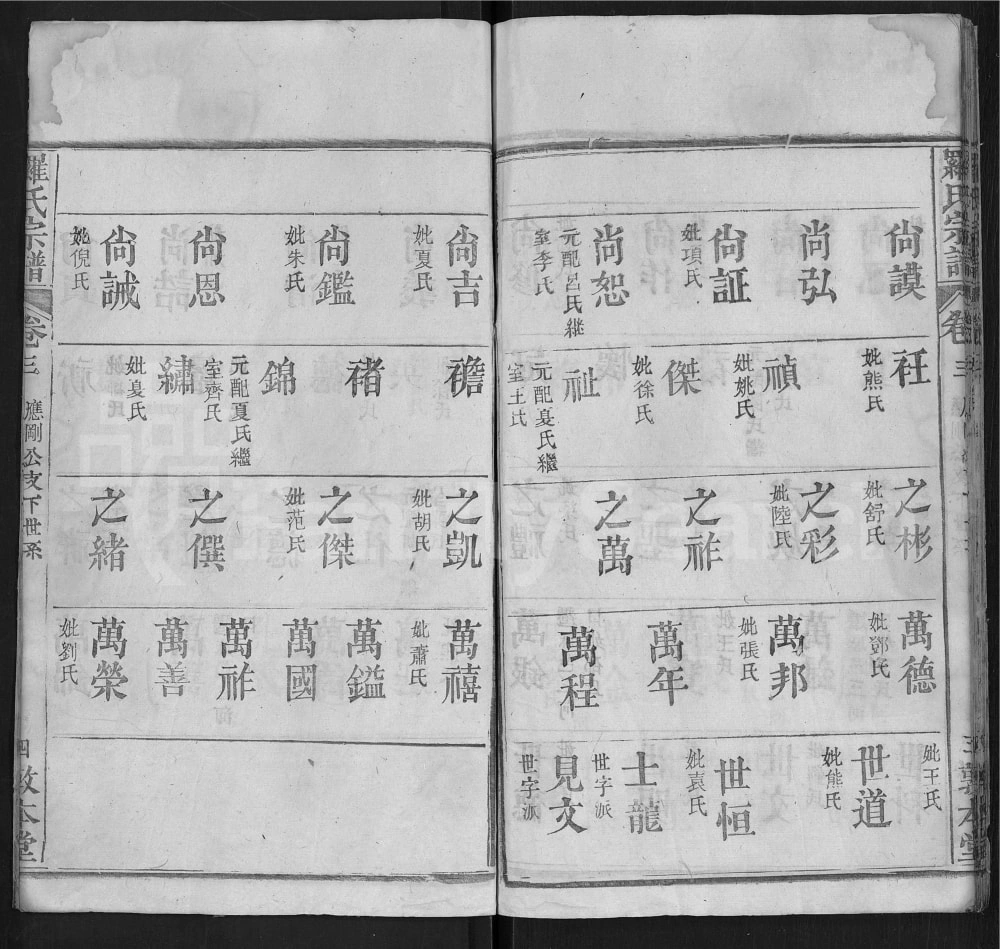 羅氏宗譜
卷三
三
敦本堂
尙謨
尙弘
尙証
妣項氏
尙恕
元配呂氏繼
室李氏
妣熊氏
禎
妣姚氏
傑
妣徐氏
祉
元配夏氏繼
室王氏
之彬
妣舒氏
之彩
妣陸氏
之祚
之萬
萬德
妣鄧氏
萬邦
妣張氏
萬年
萬程
妣王氏
世道
妣熊氏
世恒
妣袁氏
士龍
世字派
見文
世字派
尙吉
妣夏氏
尙鑑
妣朱氏
尙恩
尙誠
妣倪氏
襜
褚
錦
元配夏氏繼
室齊氏
繡
妣夏氏
之凱
妣胡氏
之傑
妣范氏
之僎
之緒
萬禧
妣蕭氏
萬鎰
萬國
萬祚
萬善
萬榮
妣劉氏
羅氏宗譜
卷三
應剛公支下世系
四
敦本堂